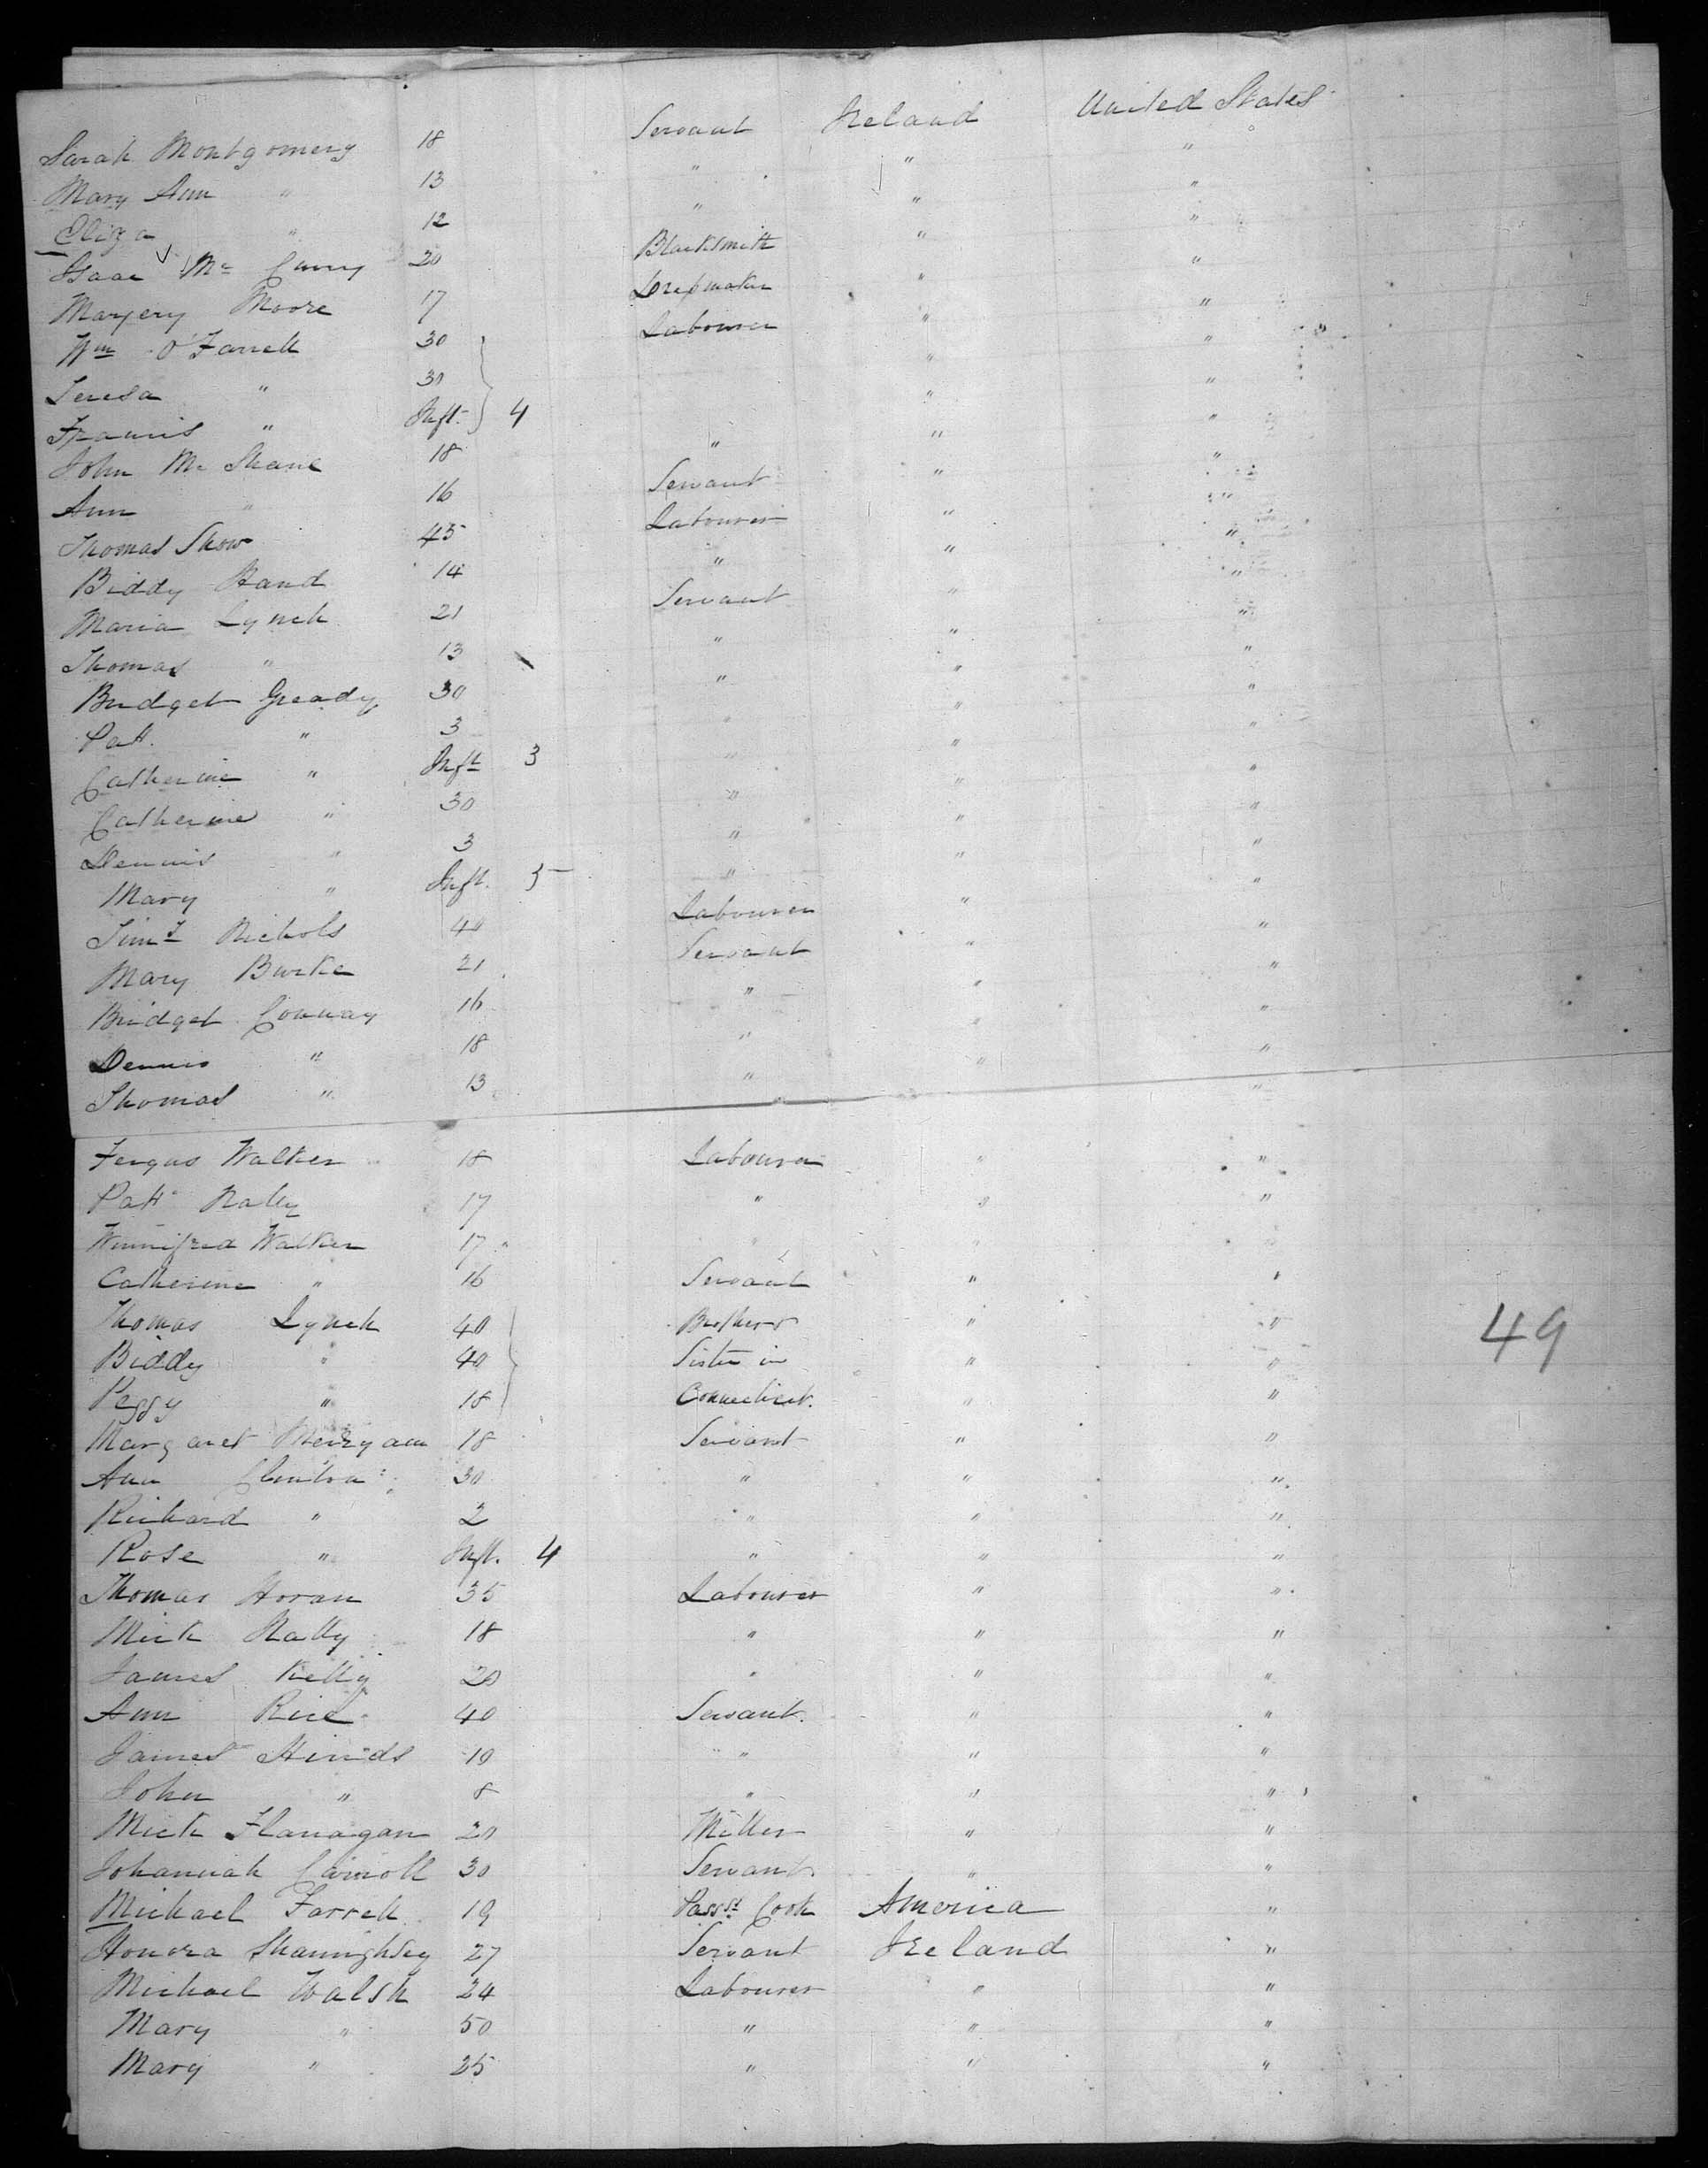 Sarah Montgomery 18 Servant Ireland United States
Mary Ann " 13 " " "
Eliza " 12 " " "
Isaac Mc 20 Blacksmith " "
Margery Moore 17 Dressmaker " "
Wm O'Farrell 30 Labourer " "
Teresa " 30 " "
Francis " Inft. 4 " "
John Mc Shane 18 " " "
Ann " 16 Servant " "
Thomas Show 45 Labourer " "
Biddy Hand 14 " " "
Maria Lynch 21 Servant " "
Thomas " 13 " " "
Bridget Gready 30 " " "
Patt. " 3 " " "
Catherine " Inft 3 " " "
Catherine " 30 " " "
Dennis " 3 " " "
Mary " Inft. " " "
Timy Nichols 40 Labourer " "
Mary Burke 21 Servant " "
Bridget Conway 16 " " "
Dennis " 18 " " "
Thomas " 13 " " "
Fergus Walker 18 Labourer " "
Patt Nally 17 " " "
Winnifred Walker 17 " " "
Catherine " 16 Servant " "
Thomas Lynch 40 Brother " "
Biddy " 40 Sister in " " 49
Peggy " 18 Connecticut. " "
Margaret 18 Servant " "
Ann Clinton 30 " " "
Richard " 2 " " "
Rose " Inft. 4 " " "
Thomas Horan 35 Labourer " "
Mick Nally 18 " " "
James Kelly 20 " " "
Ann Rice 40 Servant. " "
James Hinds 10 " " "
John " 8 " " "
Mick Flanagan 20 Miller " "
Johannah Carroll 30 Servant " "
Michael Farrell 19 Passr. Cook America "
Honora Shaunighsey 27 Servant Ireland "
Michael Walsh 24 Labourer " "
Mary " 50 " " "
Mary " 25 " " "